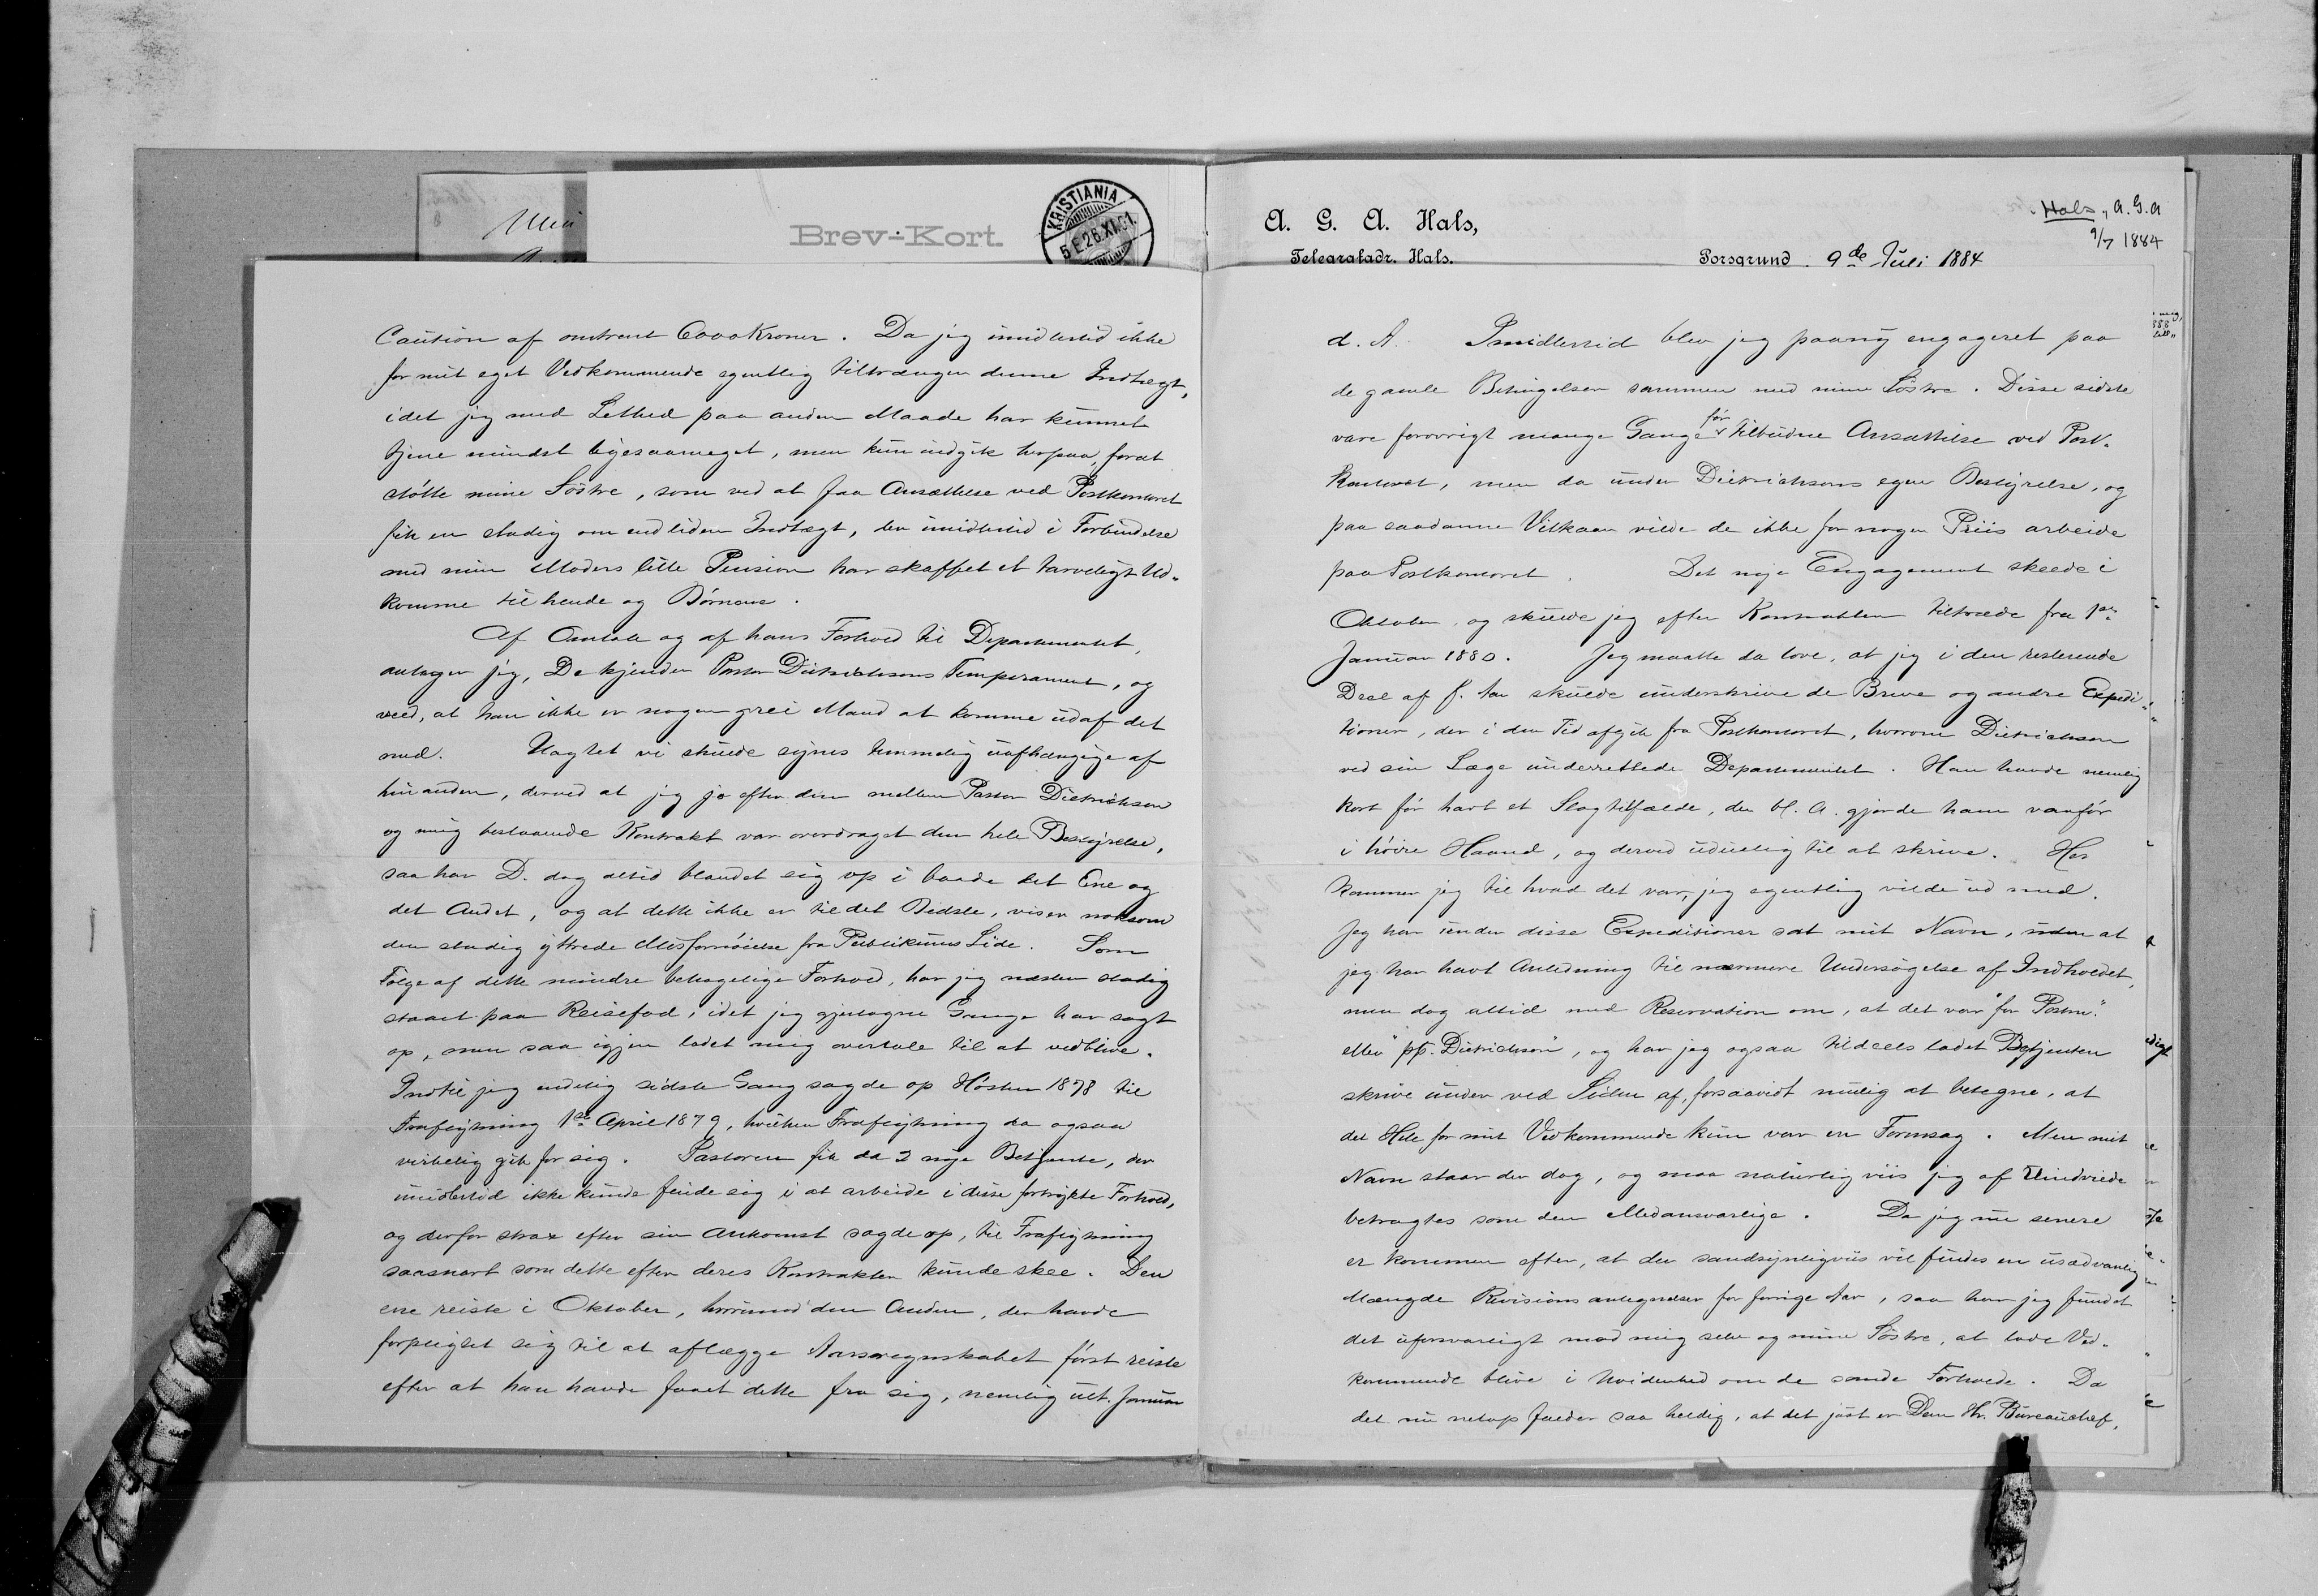 Brev-Kort.
KRISTIANIA
5 E. 26 XI. 91.
Caution af omtrent 6000 Kroner. Da jeg imidlertid ikke
for mit eget Vedkommende egentlig tiltrænger denne Indtægt,
idet jeg med Lethed paa anden Maade har kunnet
tjene mindst ligesaameget, men kun indgik herpaa, forat
støtte mine Søstre, som ved at faa Ansættelse ved Postkontoret
fik en stadig om end liden Indtægt, der imidlertid i Forbindelse
med min Moders lille Pension har skaffet et tarveligt Ud-
komme til hende og Børnene.
Af Omtale og af hans Forhold til Departementet,
antager jeg, De kjender Pastor Dietrichsons Temperament, og
veed, at han ikke er nogen grei Mand at komme ud af det
med. Uagtet vi skulde synes temmelig uafhængige af
hinanden, derved at jeg jo efter den mellem Pastor Dietrichson
og mig bestaaende Kontrakt var overdraget den hele Bestyrelse,
saa har D. dog altid blandet sig op i baade det Ene og
det Andet, og at dette ikke er til det Bedste, viser noksom
den stadig yttrede Misfornøielse fra Publikums Side. Som
Følge af dette mindre behagelige Forhold, har jeg næsten stadig
staaet paa Reisefod, idet jeg gjentagne Gange har sagt
op, men saa igjen ladet mig overtale til at vedblive.
Indtil jeg endelig sidste Gang sagde op Høsten 1878 til
Fraflytning 1ste April 1879, hvilken Fraflytning da ogsaa
virkelig gik for sig. Pastoren fik da 2 nye Betjente, der
imidlertid ikke kunde finde sig i at arbeide i disse fortrykte Forhold,
og derfor strax efter sin Ankomst sagde op, til Fraflytning
saasnart som dette efter deres Kontrakter kunde skee. Den
ene reiste i Oktober, hvorimod den Anden, der havde
forpligtet sig til at aflægge Aarsregnskabet først reiste
efter at han havde faaet dette fra sig, nemlig ult. Januar
A. G. A. Hals,
Telegrafadr. Hals.
Porsgrund 9de Juli 1884
Hals, A. G. A
9/7 1884
d. A. Imidlertid blev jeg paany engageret paa
de gamle Betingelser sammen med mine Søstre. Disse sidste
vare forøvrigt mange Gange før tilbudne Ansættelse ved Post-
kontoret, men da under Dietrichsons egen Bestyrelse, og
paa saadanne Vilkaar vilde de ikke for nogen Priis arbeide
paa Postkontoret. Det nye Engagement skeede i
Oktober, og skulde jeg efter Kontrakten tiltræde fra 1ste
Januar 1880. Jeg maatte da love, at jeg i den resterende
Deel af f. Aar skulde underskrive de Breve og andre Expedi-
tioner, der i den Tid afgik fra Postkontoret, hvorom Dietrichson
ved sin Læge underrettede Departementet. Han havde nemlig
kort før havt et Slagtilfælde, der bl. A. gjorde ham vanfør
i høire Haand, og derved uduelig til at skrive. Her
kommer jeg til hvad det var, jeg egentlig vilde ud med.
Jeg har under disse Expeditioner sat mit Navn, uden at
jeg har havt Anledning til nærmere Undersøgelse af Indholdet,
men dog altid med Reservation om, at det var "for Postm."
eller "pp. Dietrichson", og har jeg ogsaa tildeels ladet Betjenten
skrive under ved Siden af, forsaavidt mulig at betegne, at
det Hele for mit Vedkommende kun var en Formsag. Men mit
Navn staar der dog, og maa naturligviis jeg af Uindviede
betragtes som den Medansvarlige. Da jeg nu senere
er kommen efter, at der sandsynligviis vil findes en usædvanlig
Mængde Revisionsantegnelser for forrige Aar, saa har jeg fundet
det uforsvarligt mod mig selv og mine Søstre, at lade Ved-
kommende blive i Uvidenhed om de sande Forholde. Da
det nu netop falder saa heldig, at det just er Dem Hr. Bureauchef,